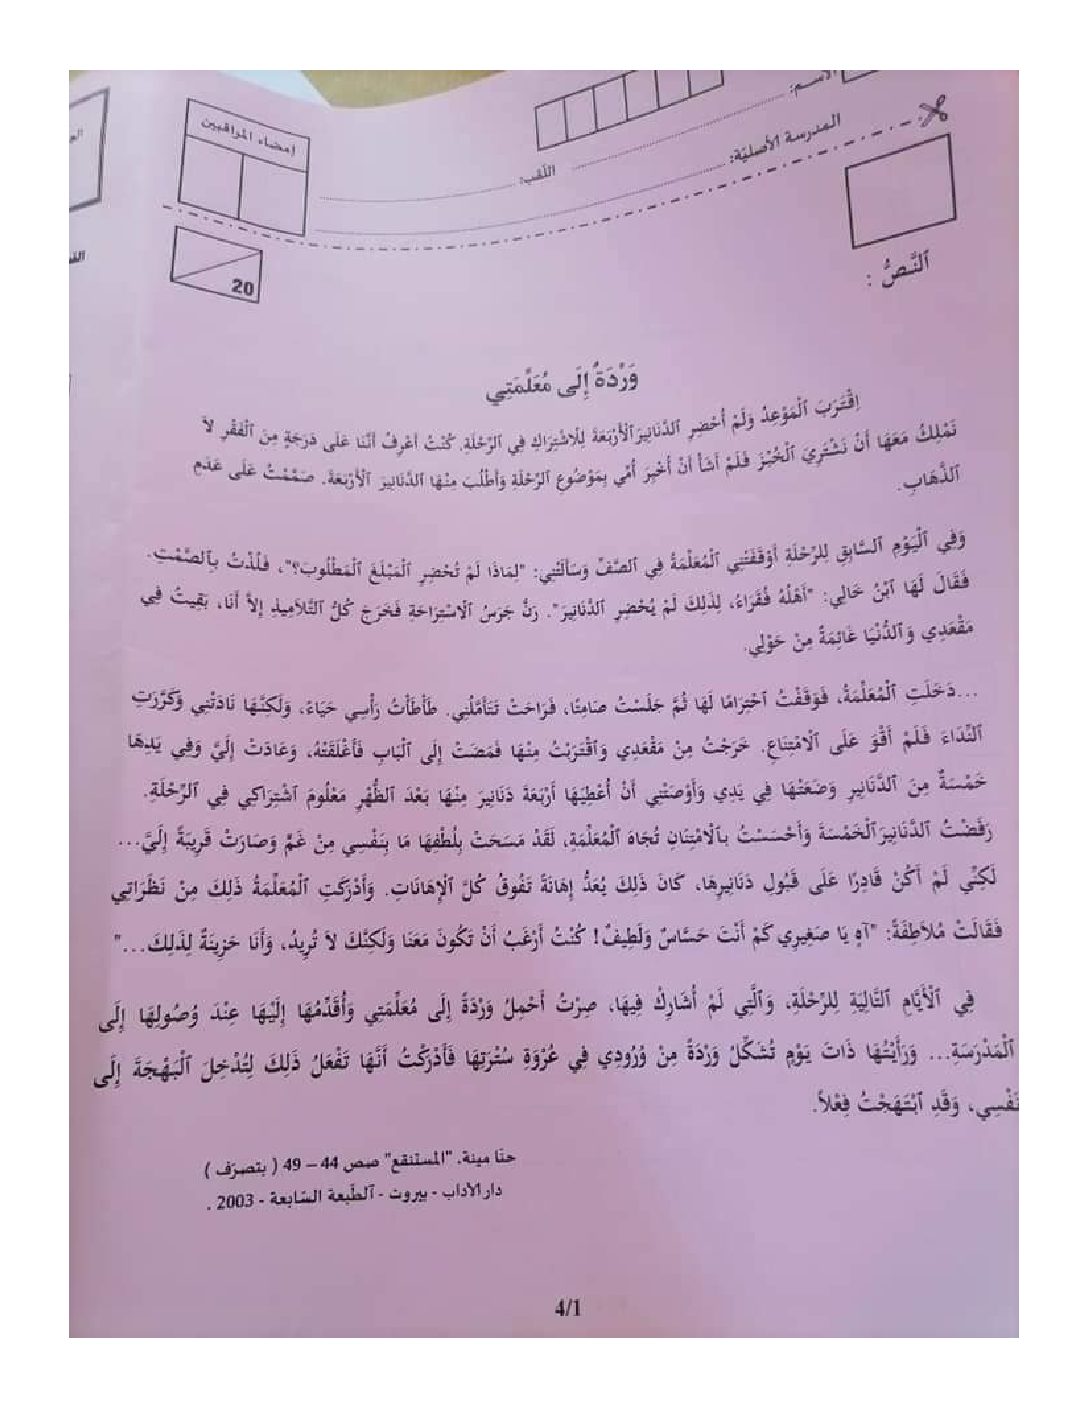 الاسم:
المدرسة الأصليّة: اللّقب:
إمضاء المراقبين
20
اَلنَّصُّ :
وَرْدَةٌ إِلَى مُعَلِّمَتِي
اِقْتَرَبَ ٱلْمَوْعِدُ وَلَمْ أُحْضِرِ ٱلدَّنَانِيرَ ٱلْأَرْبَعَةَ لِلِاشْتِرَاكِ فِي ٱلرِّحْلَةِ. كُنْتُ أَعْرِفُ أَنَّنَا عَلَى دَرَجَةٍ مِنَ ٱلْفَقْرِ لاَ
نَمْلِكُ مَعَهَا أَنْ نَشْتَرِيَ ٱلْخُبْزَ فَلَمْ أَشَأْ أَنْ أُخْبِرَ أُمِّي بِمَوْضُوعِ ٱلرِّحْلَةِ وَأَطْلُبَ مِنْهَا ٱلدَّنَانِيرَ ٱلْأَرْبَعَةَ. صَمَّمْتُ عَلَى عَدَمِ
ٱلذَّهَابِ.
وَفِي ٱلْيَوْمِ ٱلسَّابِقِ لِلرِّحْلَةِ أَوْقَفَتْنِي ٱلْمُعَلِّمَةُ فِي ٱلصَّفِّ وَسَأَلَتْنِي: "لِمَاذَا لَمْ تُحْضِرِ ٱلْمَبْلَغَ ٱلْمَطْلُوبَ؟"، فَلُذْتُ بِٱلصَّمْتِ.
فَقَالَ لَهَا ٱبْنُ خَالِي: "أَهْلُهُ فُقَرَاءُ، لِذَلِكَ لَمْ يُحْضِرِ ٱلدَّنَانِيرَ". رَنَّ جَرَسُ ٱلْاسْتِرَاحَةِ فَخَرَجَ كُلُّ ٱلتَّلَامِيذِ إِلاَّ أَنَا، بَقِيتُ فِي
مَقْعَدِي وَٱلدُّنْيَا غَائِمَةٌ مِنْ حَوْلِي.
...دَخَلَتِ ٱلْمُعَلِّمَةُ، فَوَقَفْتُ ٱحْتِرَامًا لَهَا ثُمَّ جَلَسْتُ صَامِتًا، فَرَاحَتْ تَتَأَمَّلُنِي. طَأْطَأْتُ رَأْسِي حَيَاءً، وَلَكِنَّهَا نَادَتْنِي وَكَرَّرَتِ
ٱلنِّدَاءَ فَلَمْ أَقْوَ عَلَى ٱلْامْتِنَاعِ. خَرَجْتُ مِنْ مَقْعَدِي وَٱقْتَرَبْتُ مِنْهَا فَمَضَتْ إِلَى ٱلْبَابِ فَأَغْلَقَتْهُ، وَعَادَتْ إِلَيَّ وَفِي يَدِهَا
خَمْسَةٌ مِنَ ٱلدَّنَانِيرِ وَضَعَتْهَا فِي يَدِي وَأَوْصَتْنِي أَنْ أُعْطِيَهَا أَرْبَعَةَ دَنَانِيرَ مِنْهَا بَعْدَ ٱلظُّهْرِ مَعْلُومَ ٱشْتِرَاكِي فِي ٱلرِّحْلَةِ.
رَفَضْتُ ٱلدَّنَانِيرَ ٱلْخَمْسَةَ وَأَحْسَسْتُ بِٱلْامْتِنَانِ تُجَاهَ ٱلْمُعَلِّمَةِ، لَقَدْ مَسَحَتْ بِلُطْفِهَا مَا بِنَفْسِي مِنْ غَمٍّ وَصَارَتْ قَرِيبَةً إِلَيَّ...
لَكِنِّي لَمْ أَكُنْ قَادِرًا عَلَى قَبُولِ دَنَانِيرِهَا، كَانَ ذَلِكَ يُعَدُّ إِهَانَةً تَفُوقُ كُلَّ ٱلْإِهَانَاتِ. وَأَدْرَكَتِ ٱلْمُعَلِّمَةُ ذَلِكَ مِنْ نَظَرَاتِي
فَقَالَتْ مُلاَطِفَةً: "آهٍ يَا صَغِيرِي كَمْ أَنْتَ حَسَّاسٌ وَلَطِيفٌ! كُنْتُ أَرْغَبُ أَنْ تَكُونَ مَعَنَا وَلَكِنَّكَ لاَ تُرِيدُ، وَأَنَا حَزِينَةٌ لِذَلِكَ..."
فِي ٱلْأَيَّامِ ٱلتَّالِيَةِ لِلرِّحْلَةِ، وَٱلَّتِي لَمْ أُشَارِكْ فِيهَا، صِرْتُ أَحْمِلُ وَرْدَةً إِلَى مُعَلِّمَتِي وَأُقَدِّمُهَا إِلَيْهَا عِنْدَ وُصُولِهَا إِلَى
ٱلْمَدْرَسَةِ... وَرَأَيْتُهَا ذَاتَ يَوْمٍ تُشَكِّلُ وَرْدَةً مِنْ وُرُودِي فِي عُرْوَةِ سُتْرَتِهَا فَأَدْرَكْتُ أَنَّهَا تَفْعَلُ ذَلِكَ لِتُدْخِلَ ٱلْبَهْجَةَ إِلَى
نَفْسِي، وَقَدِ ٱبْتَهَجْتُ فِعْلاً.
حنّا مينة، "المستنقع" صص 44 – 49 ( بتصرّف )
دار الآداب - بيروت - الطّبعة السّابعة - 2003 .
4/1